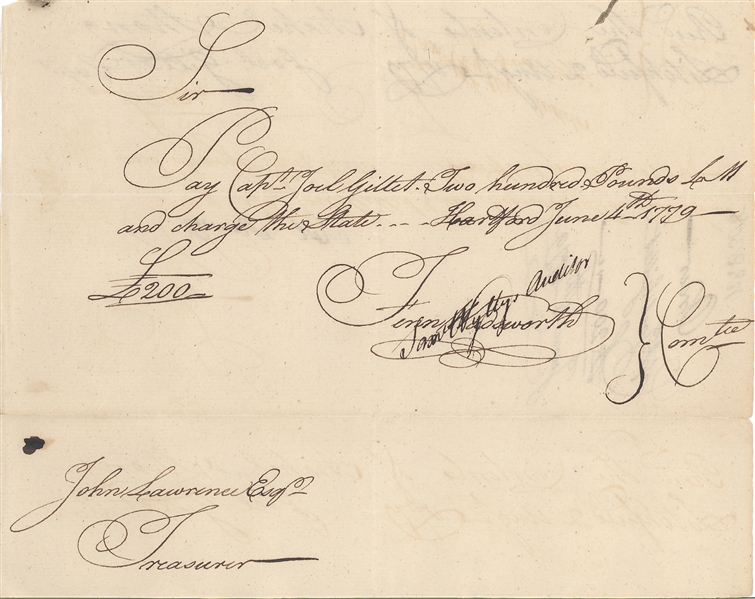 Sir
Pay Capt. Joel Gillet. Two hundred Pounds L M
and charge the State. --- Hartford June 4th 1779
£200
Fenn Wadsworth } Comtee
Saml Wyllys Auditor
John Lawrence Esqr
Treasurer